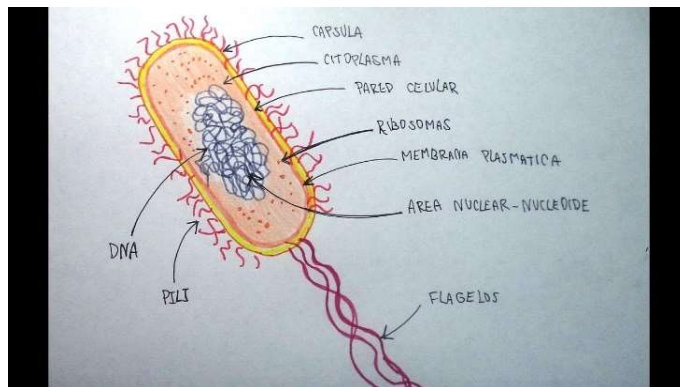 CAPSULA
CITOPLASMA
PARED CELULAR
RIBOSOMAS
MEMBRANA PLASMATICA
AREA NUCLEAR-NUCLEOIDE
DNA
PILI
FLAGELOS